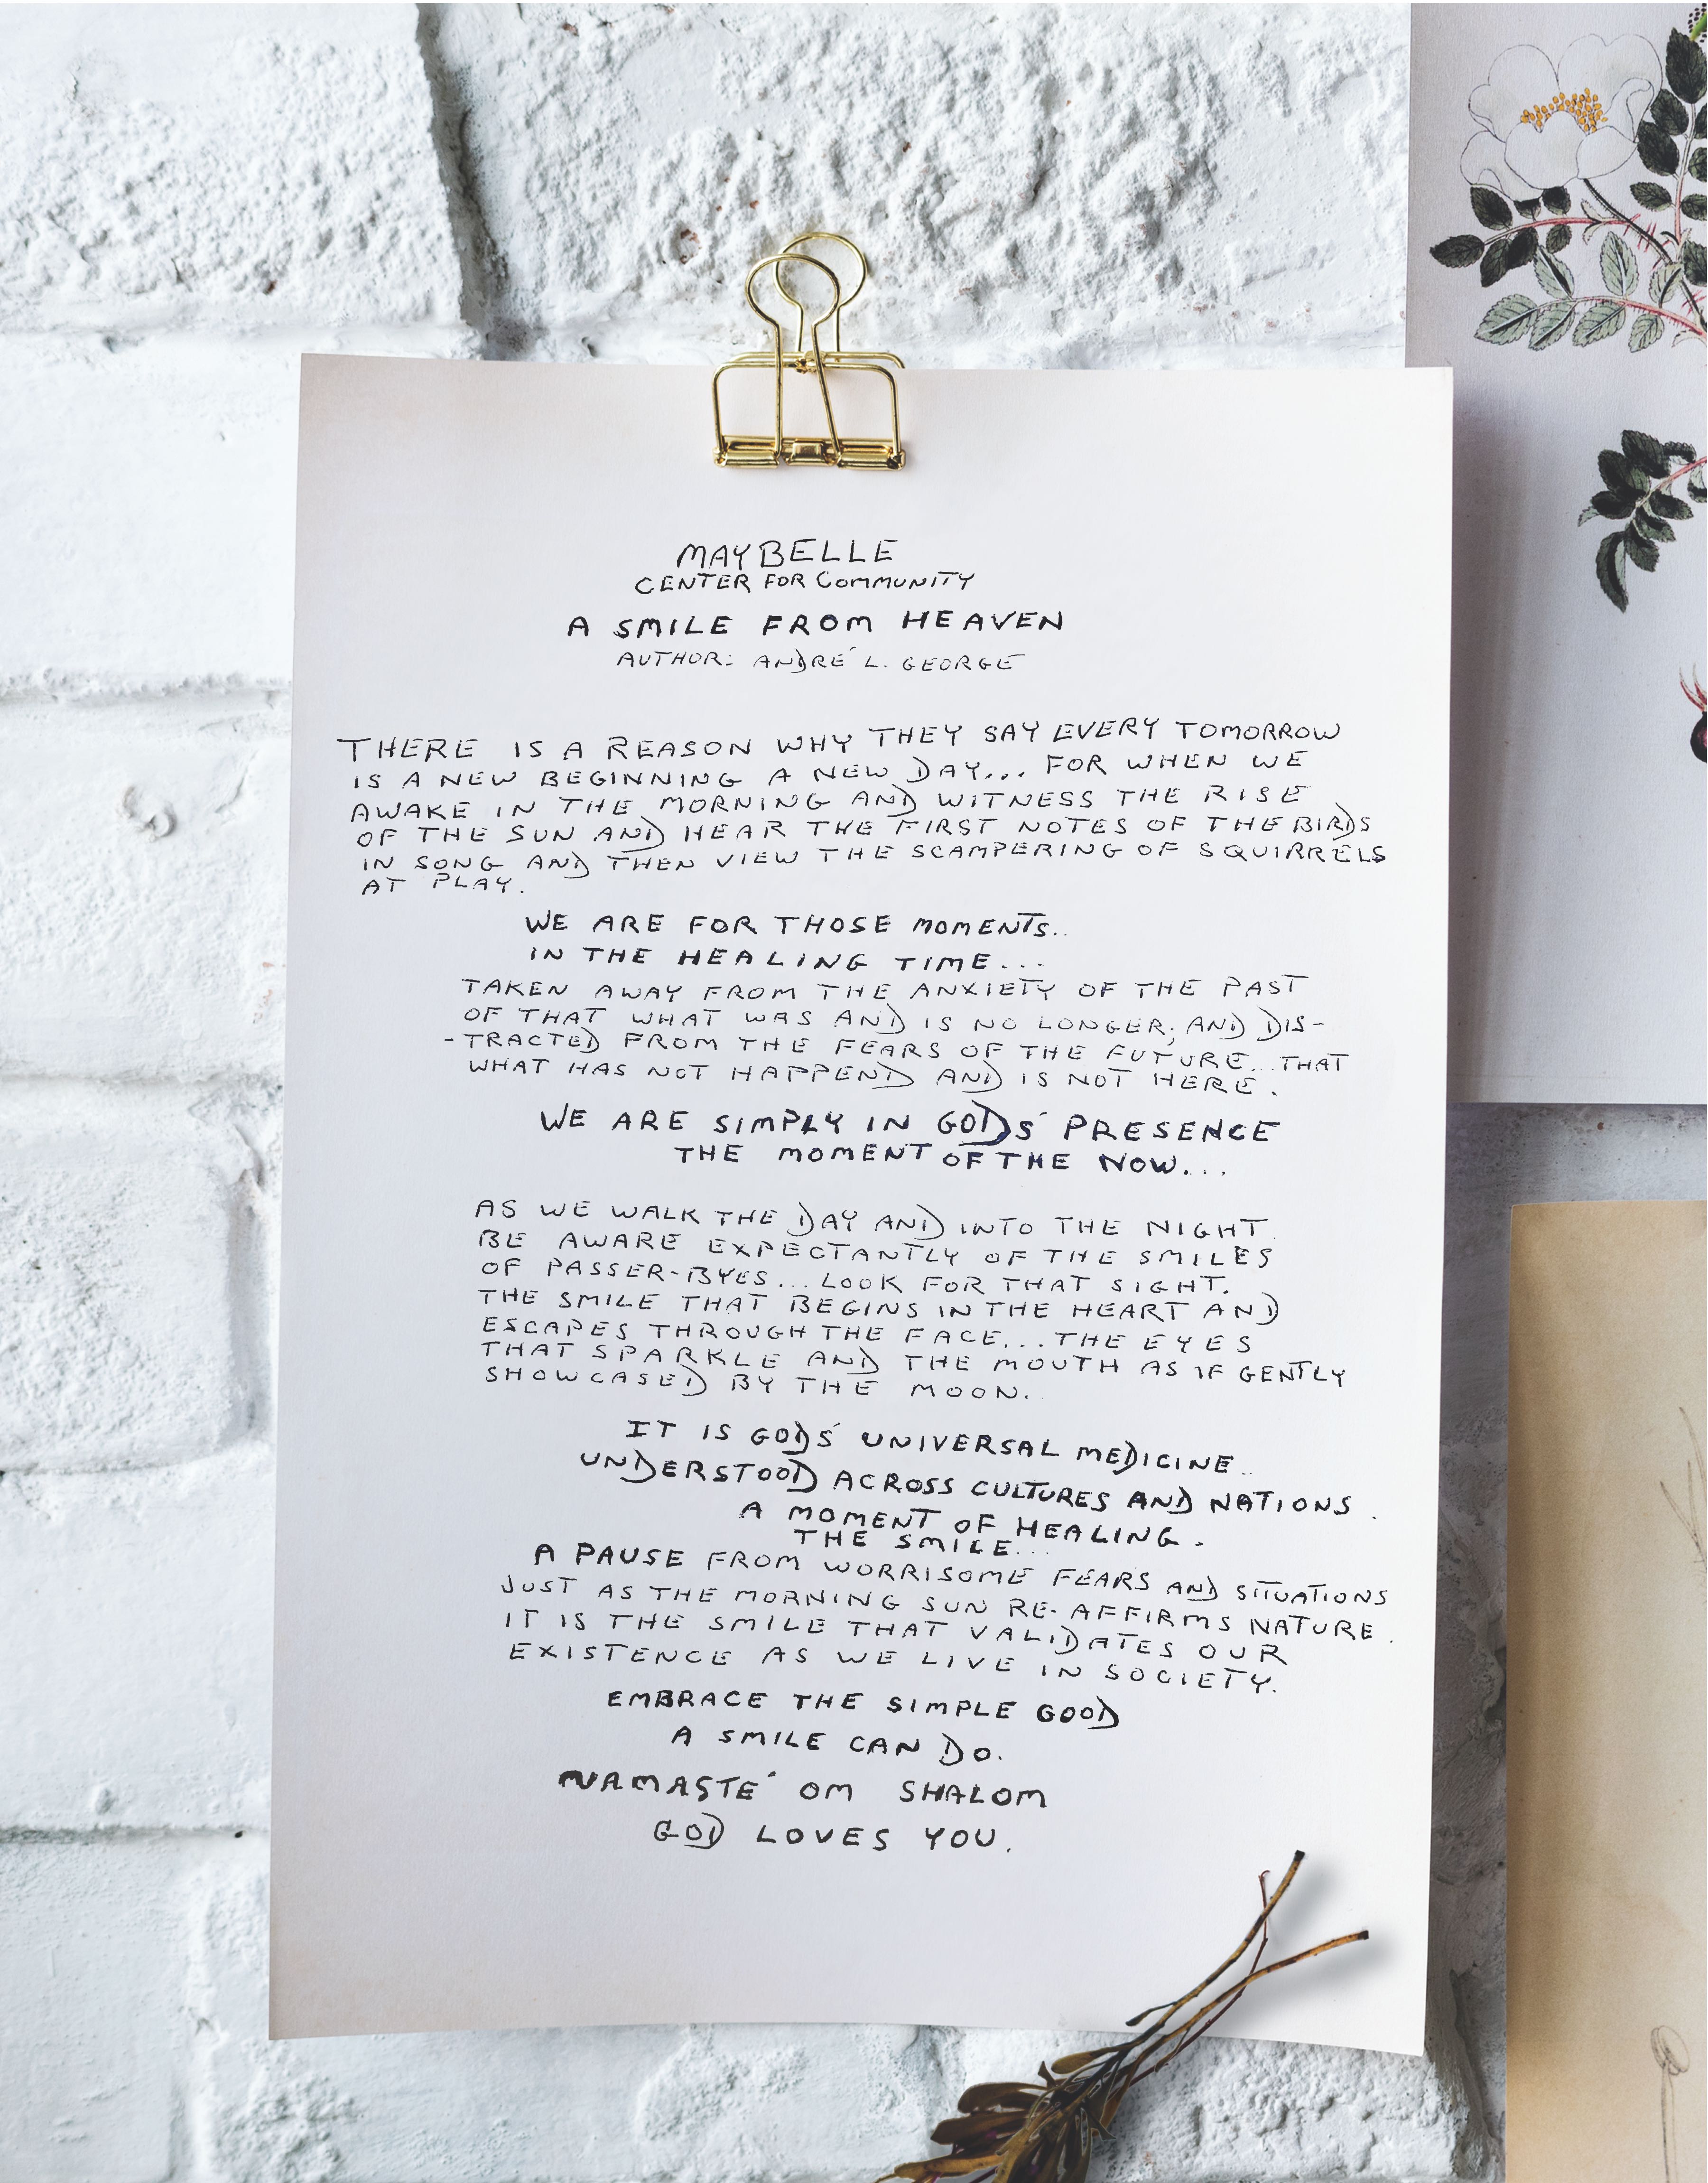 MAYBELLE
CENTER FOR COMMUNITY
A SMILE FROM HEAVEN
AUTHOR: ANDRÉ L. GEORGE
THERE IS A REASON WHY THEY SAY EVERY TOMORROW
IS A NEW BEGINNING A NEW DAY... FOR WHEN WE
AWAKE IN THE MORNING AND WITNESS THE RISE
OF THE SUN AND HEAR THE FIRST NOTES OF THE BIRDS
IN SONG AND THEN VIEW THE SCAMPERING OF SQUIRRELS
AT PLAY.
WE ARE FOR THOSE MOMENTS..
IN THE HEALING TIME...
TAKEN AWAY FROM THE ANXIETY OF THE PAST
OF THAT WHAT WAS AND IS NO LONGER; AND DIS-
-TRACTED FROM THE FEARS OF THE FUTURE... THAT
WHAT HAS NOT HAPPEND AND IS NOT HERE.
WE ARE SIMPLY IN GODS' PRESENCE
THE MOMENT OF THE NOW...
AS WE WALK THE DAY AND INTO THE NIGHT
BE AWARE EXPECTANTLY OF THE SMILES
OF PASSER-BYES... LOOK FOR THAT SIGHT.
THE SMILE THAT BEGINS IN THE HEART AND
ESCAPES THROUGH THE FACE... THE EYES
THAT SPARKLE AND THE MOUTH AS IF GENTLY
SHOWCASED BY THE MOON.
IT IS GODS' UNIVERSAL MEDICINE..
UNDERSTOOD ACROSS CULTURES AND NATIONS.
A MOMENT OF HEALING.
THE SMILE...
A PAUSE FROM WORRISOME FEARS AND SITUATIONS
JUST AS THE MORNING SUN RE-AFFIRMS NATURE.
IT IS THE SMILE THAT VALIDATES OUR
EXISTENCE AS WE LIVE IN SOCIETY.
EMBRACE THE SIMPLE GOOD
A SMILE CAN DO.
NAMASTE' OM SHALOM
GOD LOVES YOU.